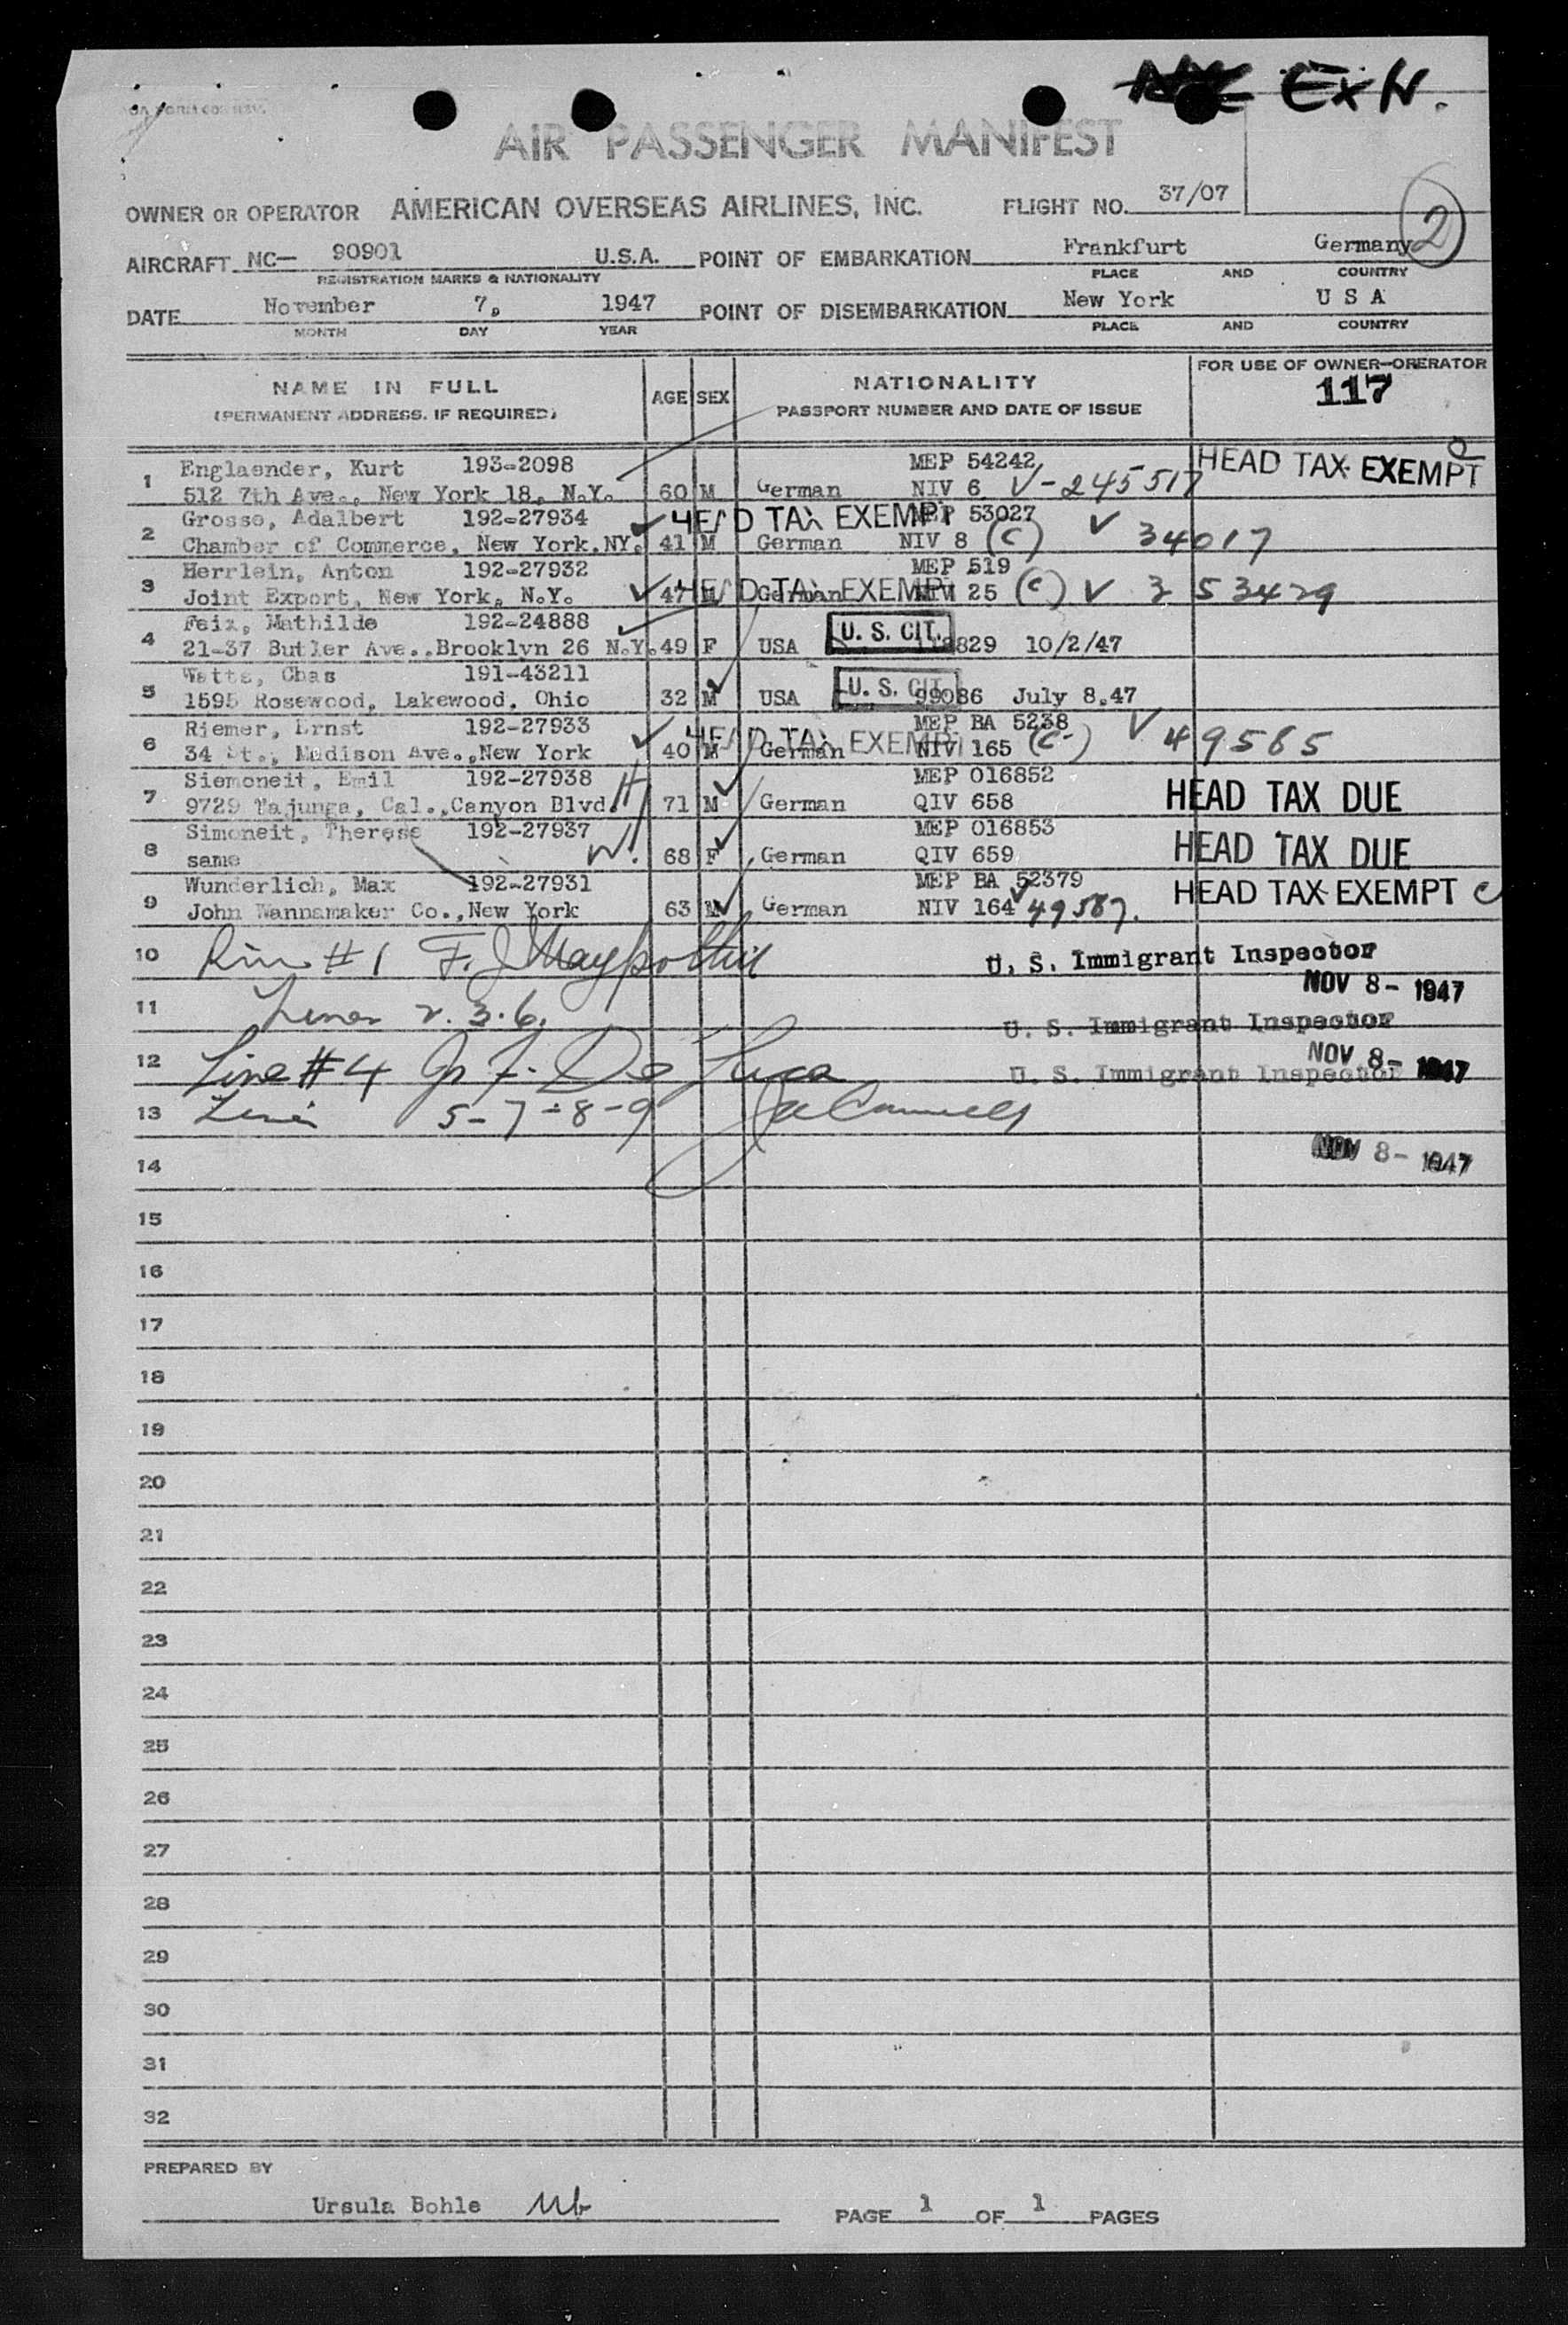 EXN.
AIR PASSENGER MANIFEST
OWNER OR OPERATOR AMERICAN OVERSEAS AIRLINES, INC. FLIGHT NO. 37/07
2
AIRCRAFT NC— 90901 U.S.A. POINT OF EMBARKATION Frankfurt Germany
REGISTRATION MARKS & NATIONALITY PLACE AND COUNTRY
DATE November 7, 1947 POINT OF DISEMBARKATION New York U S A
MONTH DAY YEAR PLACE AND COUNTRY
NAME IN FULL AGE SEX NATIONALITY FOR USE OF OWNER-OPERATOR
(PERMANENT ADDRESS, IF REQUIRED) PASSPORT NUMBER AND DATE OF ISSUE 117
1 Englaender, Kurt 193-2098 MEP 54242 HEAD TAX EXEMPT
512 7th Ave., New York 18, N.Y. 60 M German NIV 6 V-245517
2 Grosse, Adalbert 192-27934 HEAD TAX EXEMPT MEP 53027
Chamber of Commerce, New York.NY. 41 M German NIV 8 (C) V 34017
3 Herrlein, Anton 192-27932 MEP 519
Joint Export, New York, N.Y. 47 M HEAD TAX EXEMPT German NIV 25 (C) V 353429
4 Feix, Mathilde 192-24888 U. S. CIT.
21-37 Butler Ave., Brooklyn 26 N.Y. 49 F USA 10/2/47
5 Watts, Chas 191-43211 U. S. CIT.
1595 Rosewood, Lakewood, Ohio 32 M USA 99086 July 8.47
6 Riemer, Ernst 192-27933 HEAD TAX EXEMPT MEP BA 5238
34 St., Madison Ave., New York 40 M German NIV 165 (C) V 49565
7 Siemoneit, Emil 192-27938 H MEP 016852
9729 Tajunga, Cal., Canyon Blvd. 71 M German QIV 658 HEAD TAX DUE
8 Simoneit, Therese 192-27937 W. MEP 016853
same 68 F German QIV 659 HEAD TAX DUE
9 Wunderlich, Max 192-27931 MEP BA 52379 HEAD TAX EXEMPT C
John Wannamaker Co., New York 63 M German NIV 164 49587.
10 Line #1 F. J. U. S. Immigrant Inspector
NOV 8- 1947
11 Lines 2.3.6. U. S. Immigrant Inspector
NOV 8- 1947
12 Line #4 De Luca U. S. Immigrant Inspector
13 Line 5-7-8-9
NOV 8- 1947
14
15
16
17
18
19
20
21
22
23
24
25
26
27
28
29
30
31
32
PREPARED BY
Ursula Bohle Ub PAGE 1 OF 1 PAGES